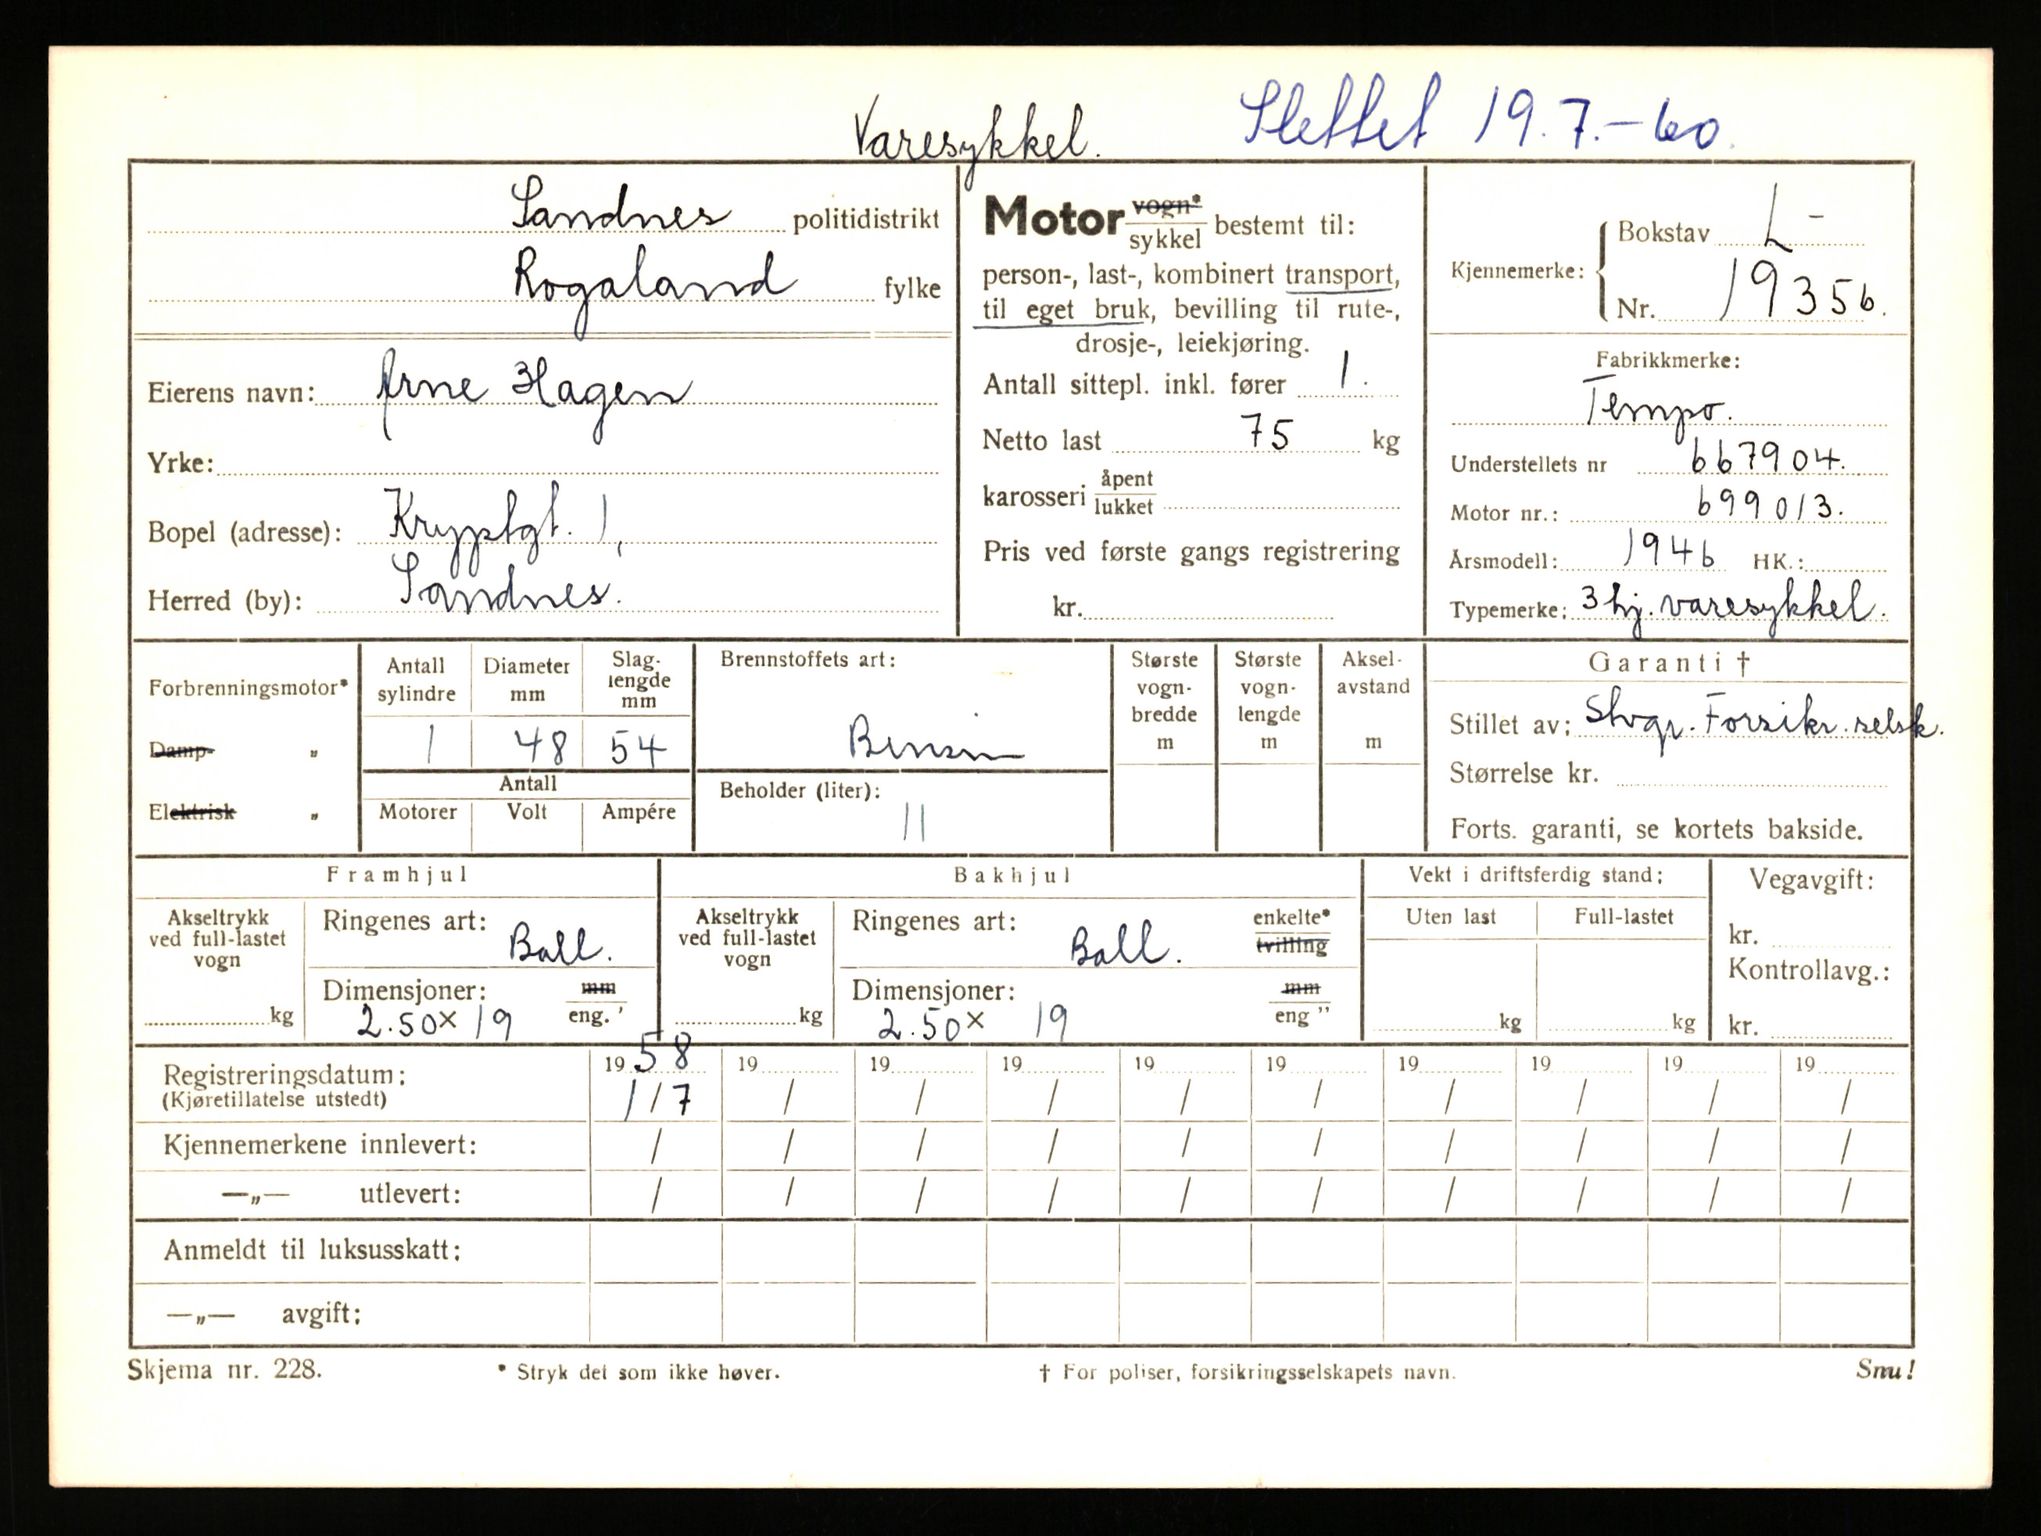 Varesykkel. Slettet 19.7.-60.
Sandnes politidistrikt
Rogaland fylke
Eierens navn: Arne Hagen
Yrke:
Bopel (adresse): 1,
Herred (by): Sandnes.
Motor vogn* sykkel bestemt til:
person-, last-, kombinert transport,
til eget bruk, bevilling til rute-,
drosje-, leiekjøring.
Antall sittepl. inkl. fører 1.
Netto last 75 kg
karosseri åpent lukket
Pris ved første gangs registrering
kr.
Kjennemerke: Bokstav L-
Nr. 19356.
Fabrikkmerke:
Tempo.
Understellets nr 667904.
Motor nr.: 699013.
Årsmodell: 1946 HK.:
Typemerke: 3 hj. varesykkel.
Forbrenningsmotor*
Damp- „
Elektrisk „
Antall sylindre
Diameter mm
Slaglengde mm
1 48 54
Antall
Motorer Volt Ampére
Brennstoffets art:
Bensin
Beholder (liter):
11
Største vogn-bredde m
Største vogn-lengde m
Aksel-avstand m
Garanti †
Stillet av: Stvgr. Forsikr. selsk.
Størrelse kr.
Forts. garanti, se kortets bakside.
Framhjul
Akseltrykk ved full-lastet vogn
kg
Ringenes art: Ball.
Dimensjoner: mm eng. '
2.50 x 19
Bakhjul
Akseltrykk ved full-lastet vogn
kg
Ringenes art: Ball. enkelte* tvilling
Dimensjoner: mm eng "
2.50 x 19
Vekt i driftsferdig stand:
Uten last Full-lastet
kg kg
Vegavgift:
kr.
Kontrollavg.:
kr.
1958 19 19 19 19 19 19 19 19 19
Registreringsdatum: 1/7 / / / / / / / / /
(Kjøretillatelse utstedt)
Kjennemerkene innlevert: / / / / / / / / / /
—„— utlevert: / / / / / / / / / /
Anmeldt til luksusskatt:
—„— avgift:
Skjema nr. 228. * Stryk det som ikke høver. † For poliser, forsikringsselskapets navn. Snu!